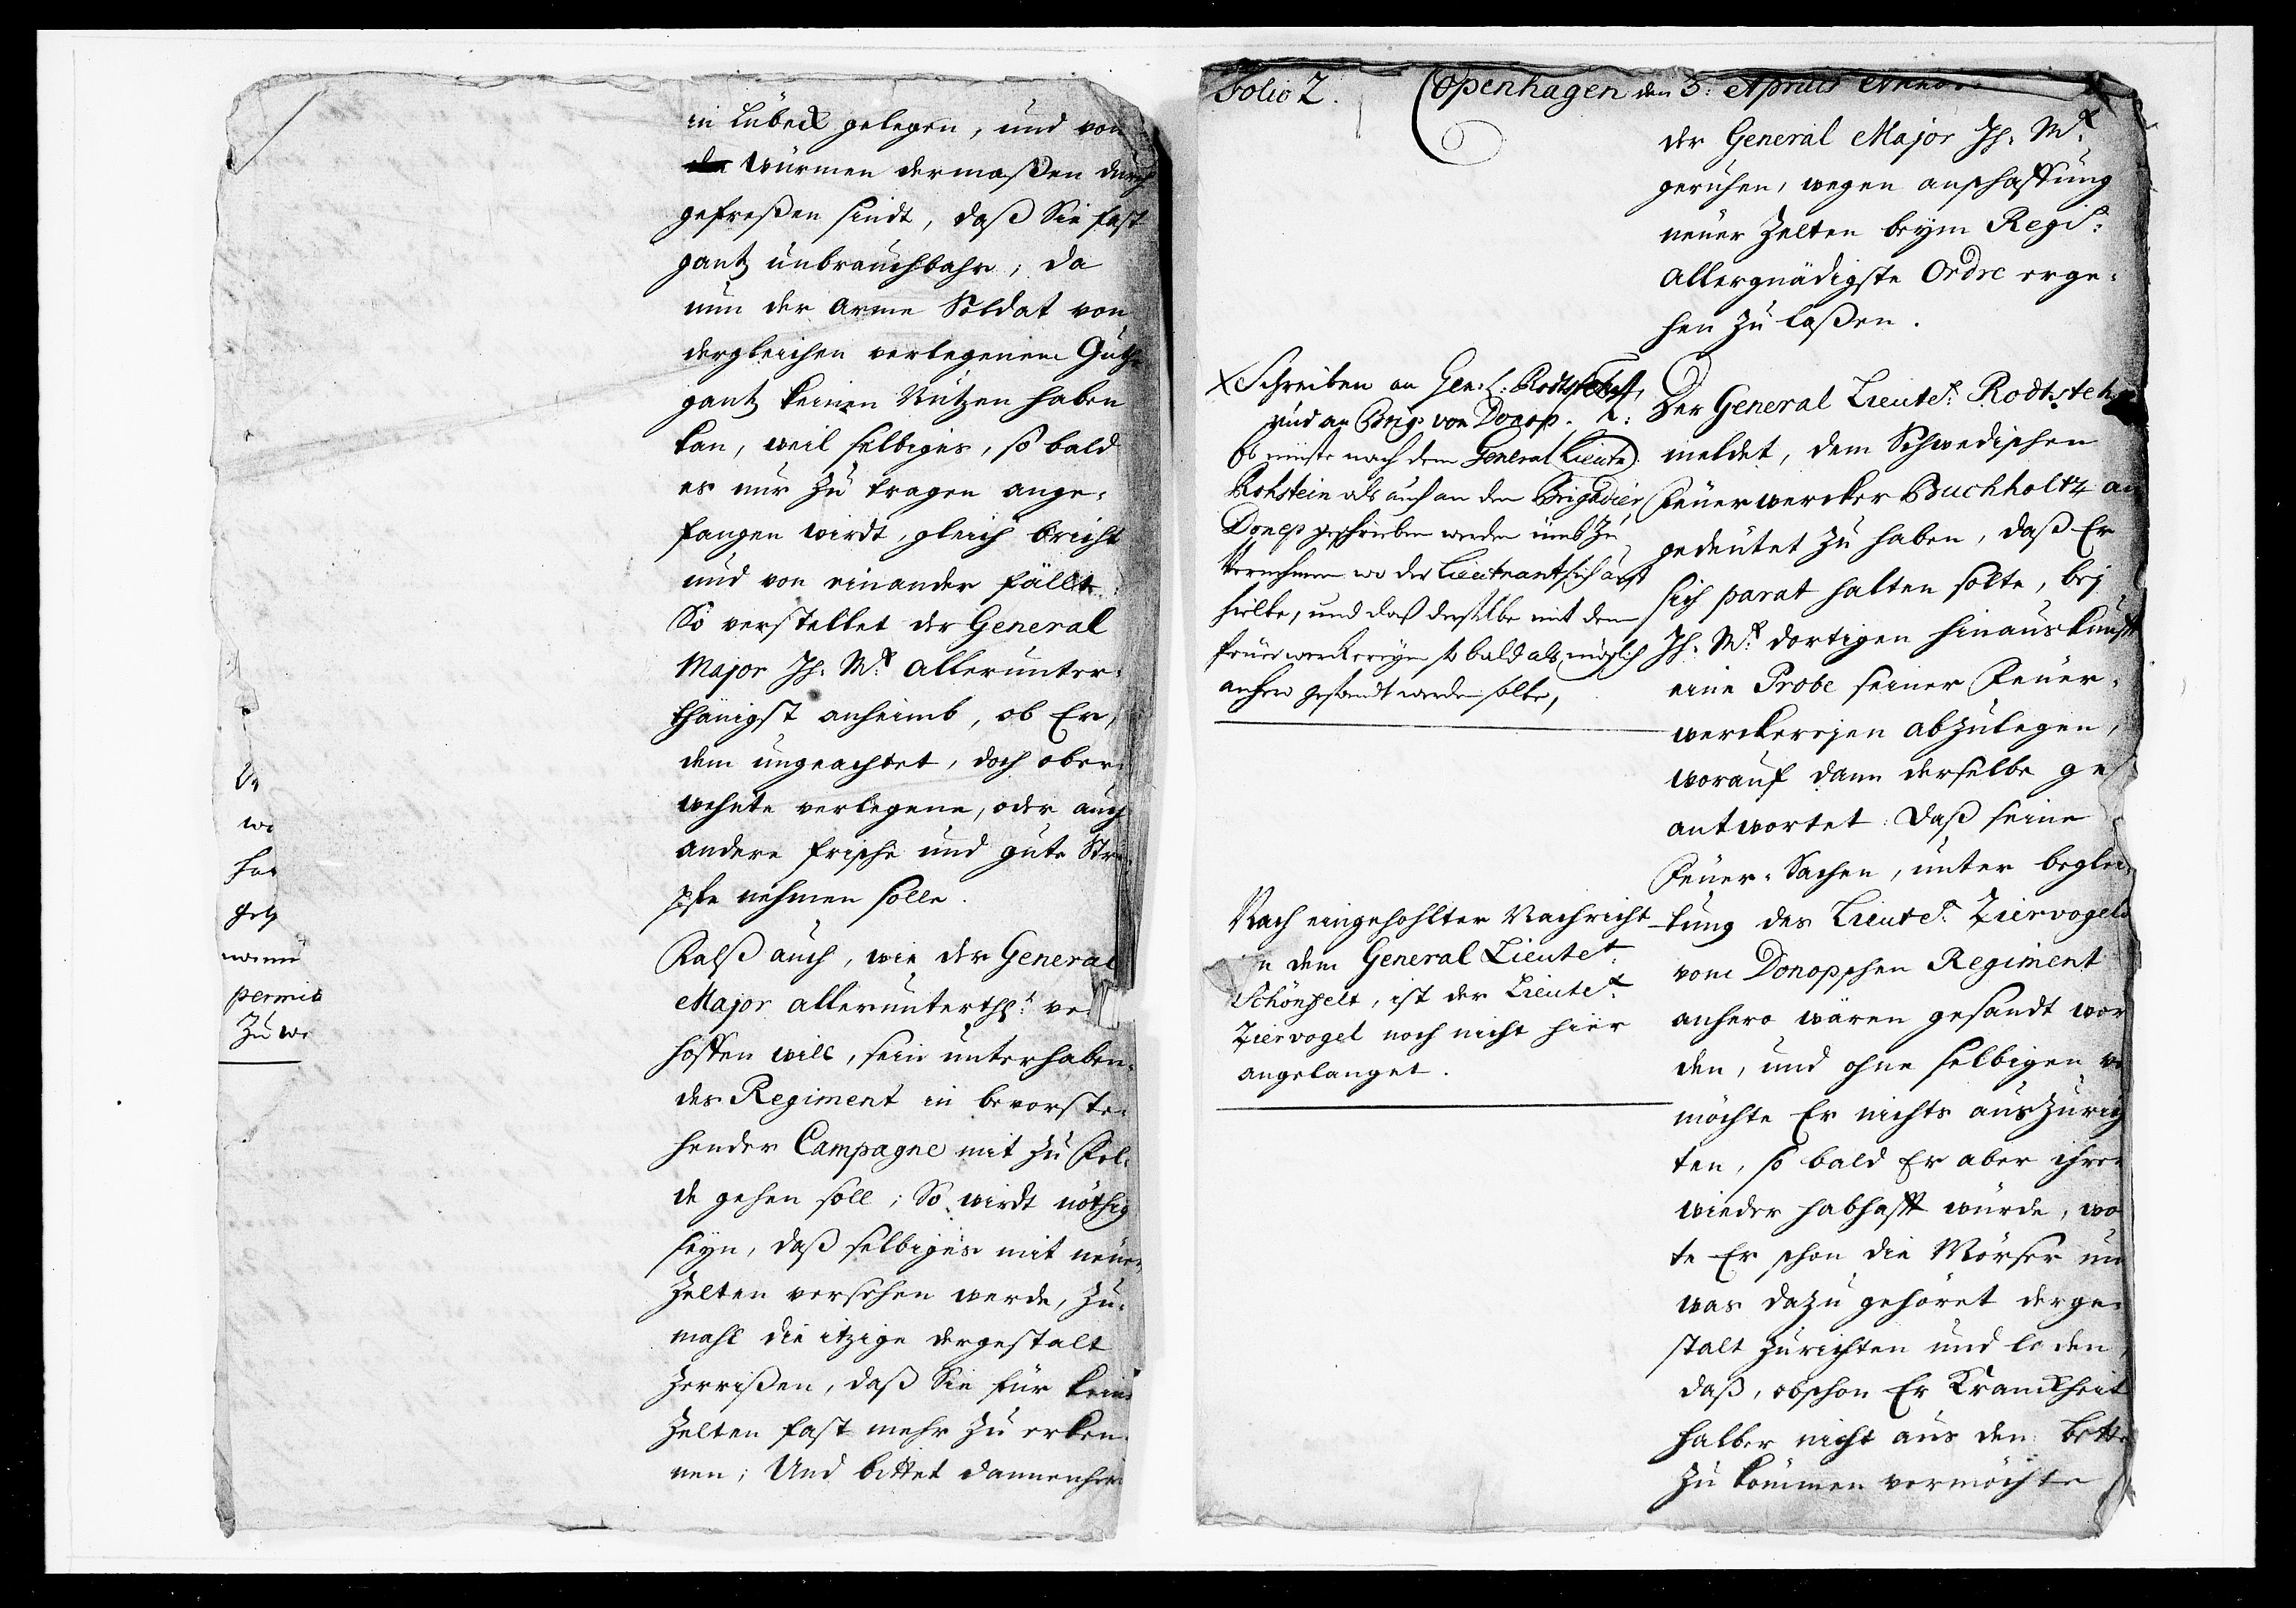 in Lübeck gelegen, und von
würmen dermaßen durch
gefreßen sindt, daß Sie fast
gantz unbrauchbahr; da
nun der arme Soldat von
dergleichen verlegenem Guthe
gantz keinen Nutzen haben
kan, weil selbiges, so bald
es nur zu tragen ange-
fangen wirdt, gleich bricht
und von einander fällt.
So verstellet der General
Major Ih. Mt. allerunter-
thänigst anheimb, ob Er,
dem ungeachtet, doch ober-
wehnte verlegene, oder auch
andere frische und gute Strü-
pfe nehmen solle.
Falß auch, wie der General
Major allerunterthst. ver
hoffen will, sein unterhaben-
des Regiment in bevorste-
hender Campagne mit zu Fel-
de gehen soll; So wirdt nöthig
seyn, daß selbiges mit neuen
Zelten versehen werde, zu-
mahl die itzige dergestalt
zerrißen, daß Sie für keine
Zelten fast mehr zu erken-
nen; Und bittet dannenhero
permit
Zu we
Folio 2. Copenhagen den 3. Aprilis Anno
der General Major Ih. Mt.
geruhen, wegen anschaffung
neuer Zelten beym Regit.
Allergnädigste Ordre erge-
hen zu laßen.
Schreiben an Gen. L: Rodtsteh,
und an Brig. von Donop.
Es müste nach dem General Lieute
Rohstein als auch an den Brigadier
Donep geschrieben werden umb zu
Vernehmen wo der Lieutnant sich auff
hielte, und daß derselbe mit dem
feuerwerckereyen so bald als möglich
anhero gesandt werden solte,
Der General Lieutet. Rodtsteh
meldet, dem Schwedischen
Feuerwercker Buchholtz an
gedeutet zu haben, daß Er
sich parat halten solte, bej
Ih. Mt. dortigen hinauskunfft
eine Probe seiner Feuer-
werckerejen abzulegen,
worauf dann derselbe ge
antwortet: Daß seine
Feuer-Sachen, unter beglei-
tung des Lieutet. Ziervogels
vom Donopschen Regiment
anhero wären gesandt wor
den, und ohne selbigen ver
möchte Er nichts auszurich
ten, so bald Er aber ihrer
wieder habhafft würde, wo
te Er schon die Mörser und
was dazu gehöret derge-
stalt zurichten und laden,
daß, obschon Er Kranckheit
halber nicht aus dem bette
zu kommen vermöchte
Nach eingehohlter Nachricht
dem General Lieutet.
Schönfelt, ist der Lieutet.
Ziervogel noch nicht hier
angelanget.